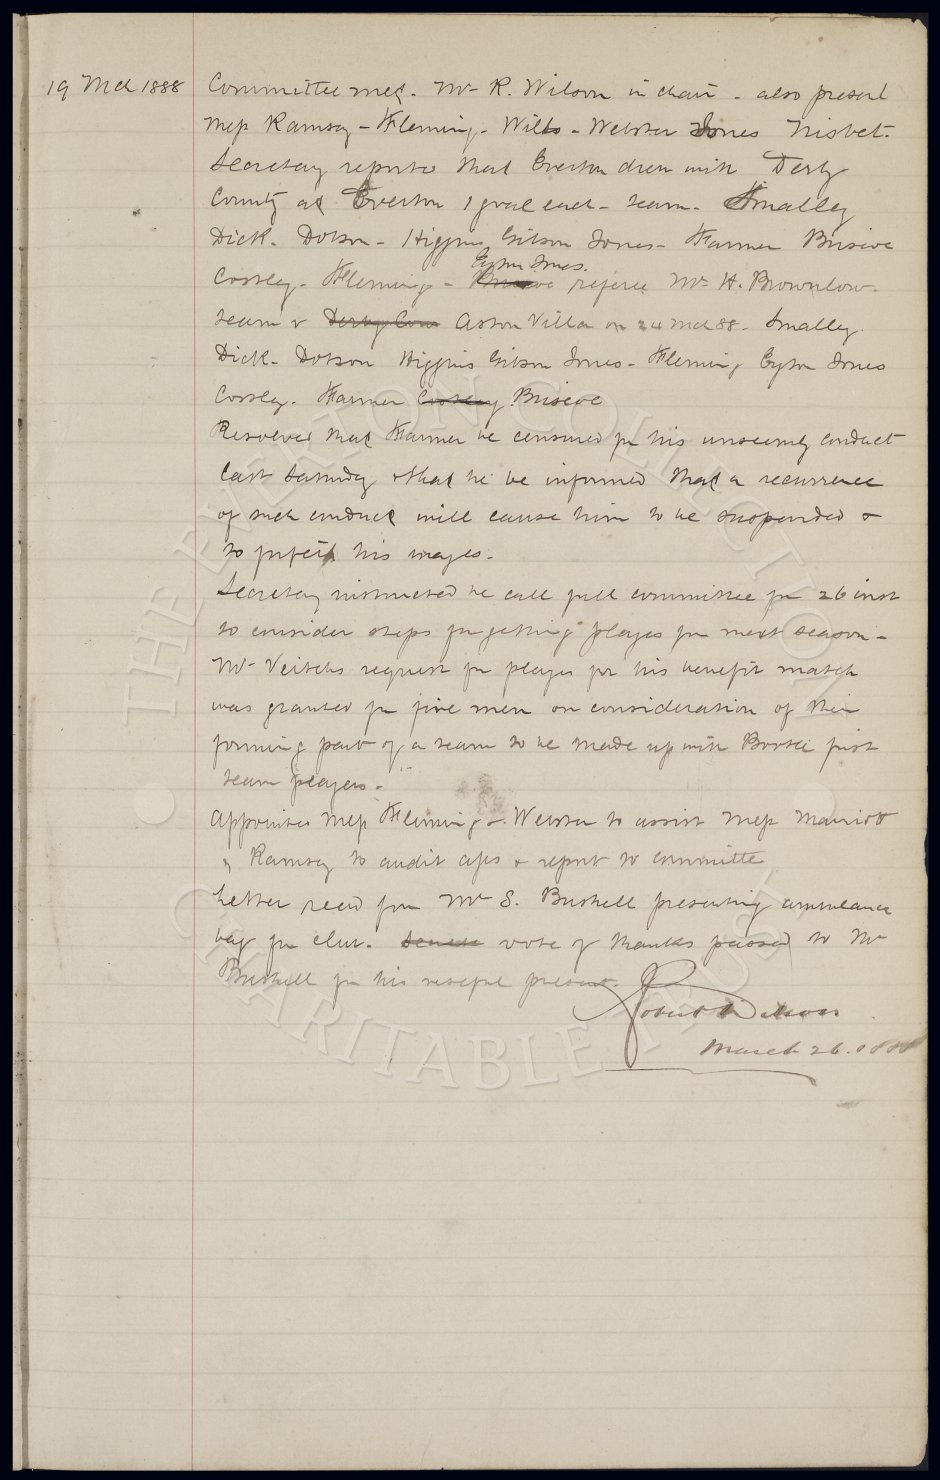 19 Mch 1888 Committee met. Mr R. Wilson in chair - also present
Mess Ramsay - Fleming - Wills - Webster Jones Nisbet.
Secretary reported that Everton drew with Derby
County at Everton 1 goal each - team - Smalley
Dick - Dobson - Higgins Gibson Jones - Farmer Briscoe
Eyton Jones.
Costley - Fleming - Briscoe referee Mr H. Brownlow -
team v Derby Coun Aston Villa on 24 Mch 88 - Smalley
Dick - Dobson Higgins Gibson Jones - Fleming Eyton Jones
Costley - Farmer Costley Briscoe
Resolved that Farmer be censured for his unseemly conduct
last Saturday & that he be informed that a recurrence
of such conduct will cause him to be suspended &
to forfeit his wages -
Secretary instructed to call full committee for 26 inst
to consider steps for getting players for next season -
Mr Veitchs request for players for his benefit match
was granted for five men on consideration of their
forming part of a team to be made up with Bootle first
team players -
Appointed Mess Fleming & Webster to assist Mess Marriott
& Ramsay to audit a/cs & report to committee
Letter recd from Mr S. Bushell presenting ambulance
bag for club - vote of thanks passed to Mr
Bushell for his useful present.
Robert Wilson
March 26. 1888
THE EVERTON COLLECTION
CHARITABLE TRUST